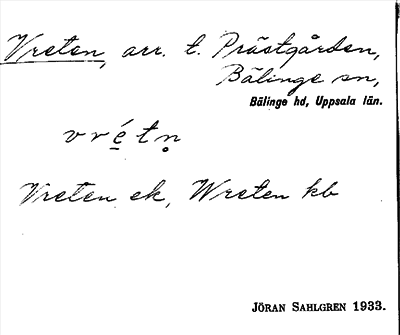 Vreten, arr. t. Prästgården,
Bälinge sn,
Bälinge hd, Uppsala län.
vrétn̥
Vreten ek, Wreten kb
JÖRAN SAHLGREN 1933.